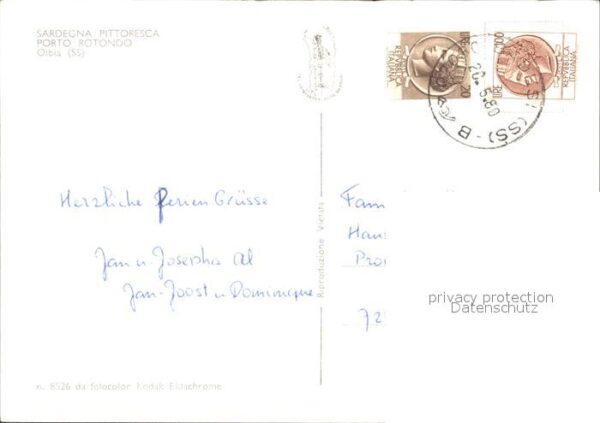 SARDEGNA PITTORESCA
PORTO ROTONDO
Olbia (SS)
LIRE 20
REPUBBLICA
ITALIANA
LIRE 100
REPUBBLICA
ITALIANA
26.5.80
(SS) - B
Herzliche Ferien Grüsse
Jan u. Josepha Al
Jan-Joost u Dominique
Riproduzione Vietata
Fam
Han
Pro
72
privacy protection
Datenschutz
n. 8526 da fotocolor Kodak Ektachrome